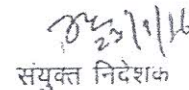 23/1/16
संयुक्त निदेशक